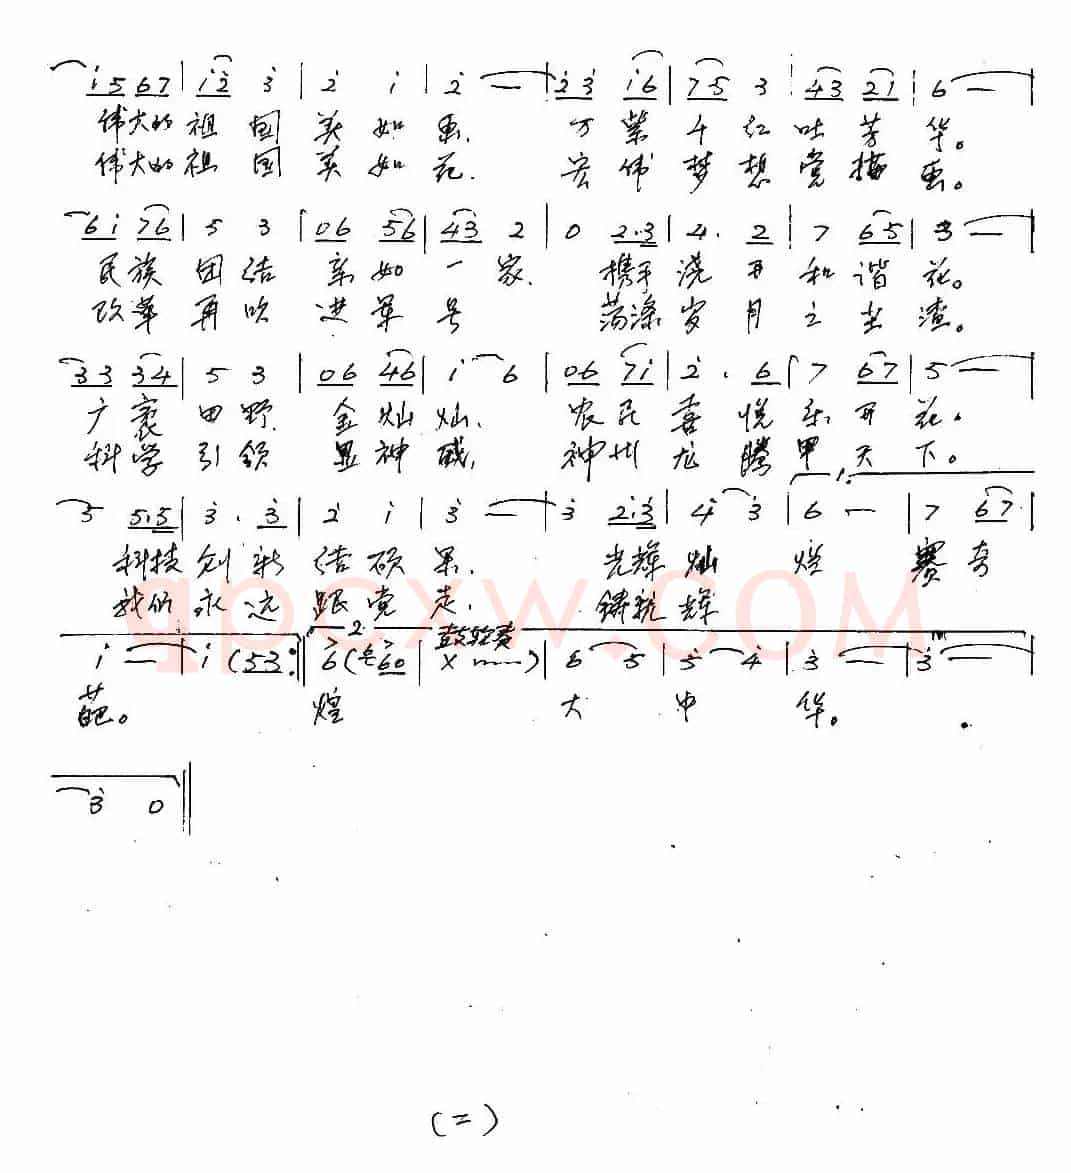 i 5 6 7 | i 2 3 | 2 i | 2 — | 2 3 i 6 | 7 5 3 | 4 3 2 1 | 6 — |
伟大的祖国美如画. 万紫千红吐芳华。
伟大的祖国美如花. 宏伟梦想党描画。
6 i 7 6 | 5 3 | 0 6 5 6 | 4 3 2 | 0 2.3 | 4. 2 | 7 6 5 | 3 — |
民族团结亲如一家. 携手浇开和谐花。
改革再吹进军号 荡涤岁月之尘渣。
3 3 3 4 | 5 3 | 0 6 4 6 | i 6 | 0 6 7 i | 2. 6 | 7 6 7 | 5 — |
广袤田野金灿灿. 农民喜悦乐开花.
科学引领显神威, 神州龙腾甲天下。
1.
5 5.5 | 3. 3 | 2 i | 3 — | 3 2.3 | 4 3 | 6 — | 7 6 7 |
科技创新结硕果. 光辉灿烂赛奇
我们永远跟党走. 铸就辉
qpcxw.COM
2. 鼓独奏
i — | i (5 3 :| 6 (6 0 | X ) | 6 5 | 5 4 | 3 — | 3 — |
葩。 煌 大中华。
3 0 ||
(二)